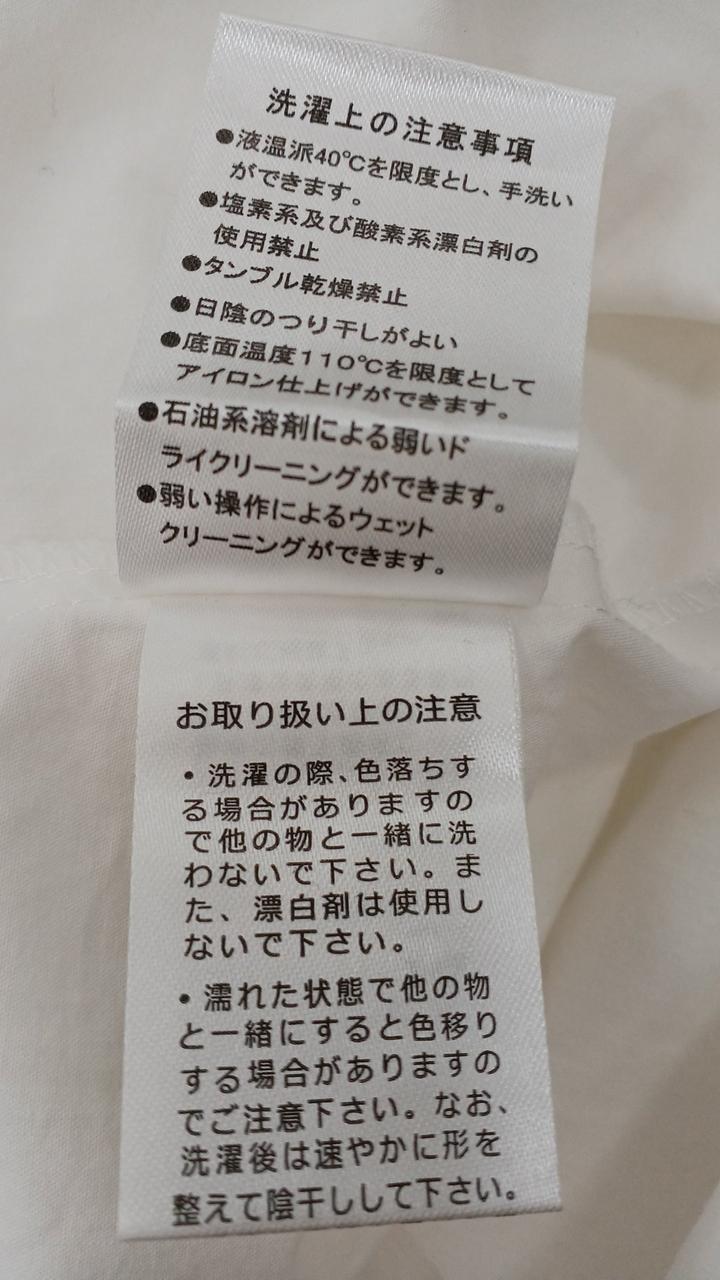 洗濯上の注意事項
●液温派40℃を限度とし、手洗い
ができます。
●塩素系及び酸素系漂白剤の
使用禁止
●タンブル乾燥禁止
●日陰のつり干しがよい
●底面温度110℃を限度として
アイロン仕上げができます。
●石油系溶剤による弱いド
ライクリーニングができます。
●弱い操作によるウェット
クリーニングができます。
お取り扱い上の注意
・洗濯の際、色落ちす
る場合がありますの
で他の物と一緒に洗
わないで下さい。ま
た、漂白剤は使用し
ないで下さい。
・濡れた状態で他の物
と一緒にすると色移り
する場合がありますの
でご注意下さい。なお、
洗濯後は速やかに形を
整えて陰干しして下さい。